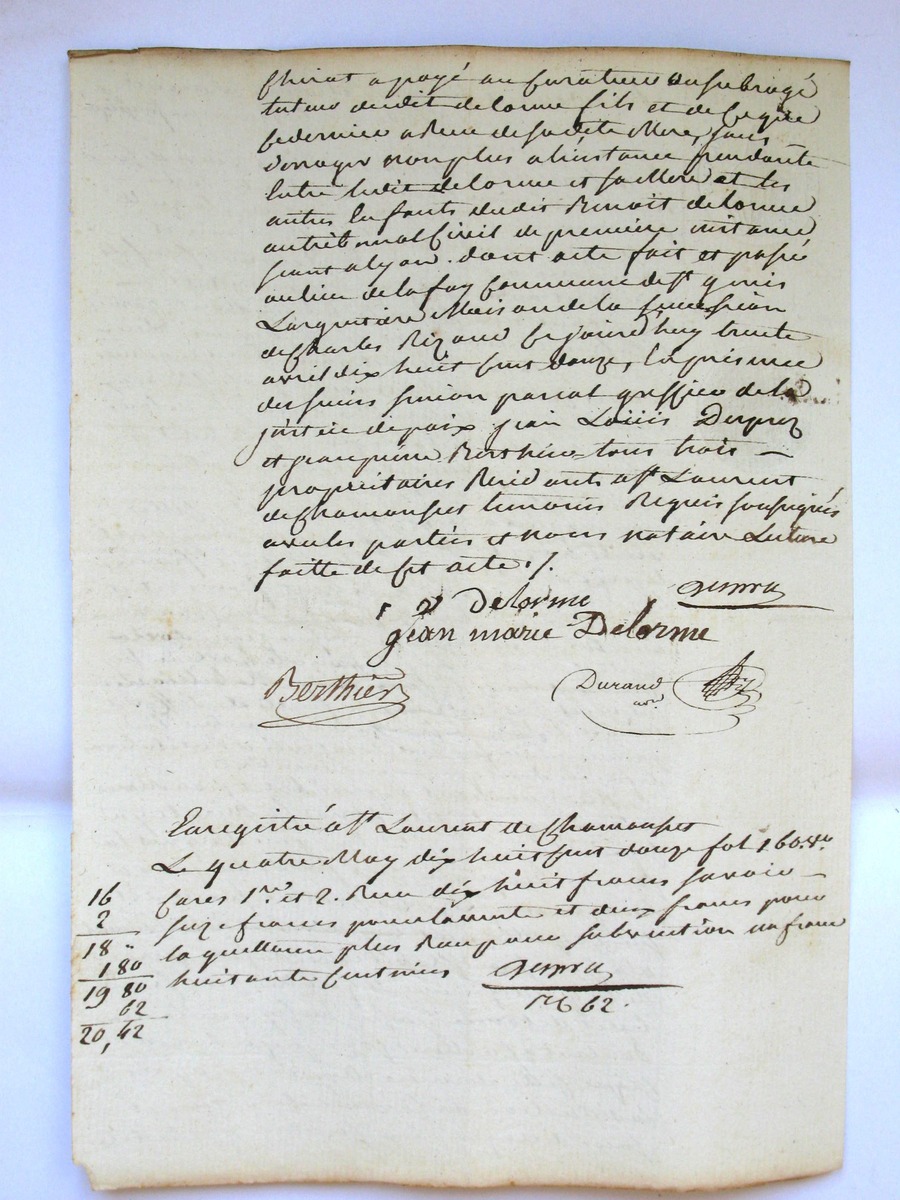 Chirat a payé au Curateur ou subrogé
tuteur dudit delorme fils et de ce que
ce dernier a Reçu de sadite Mere, sans
deroger non plus a l'instance pendante
Entre ledit delorme et sa Mere et les
autres Enfants dudit Benoit delorme
au tribunal Civil de premiere instance
seant a lyon. dont acte fait et passé
au lieu de lafay Commune de St genis
Largentiere Maison de la succession
de Charles Rizand Cejourd'huy trente
avril dix huit cent douze, En présence
des sieurs simeon parcat greffier de la
justice de paix jean Louis Dupuy
et jean pierre Berthier tous trois
proprietaires Residants a St Laurent
de Chamousset temoins Requis soussignés
avec les parties et nous notaire Lecture
faitte de Cet acte ./.
Delorme
jean marie Delorme
Berthier
Durand
Enregistré a St Laurent de Chamousset
Le quatre May dix huit cent douze fol 160 vo.
Cases 1re. et 2. Reçu dix huit francs savoir
16
seize francs pour la vente et deux francs pour
2
18 "
la quittance plus Reçu pour subvention un franc
1 80
huitante Centimes
19 80
62
62.
20,42